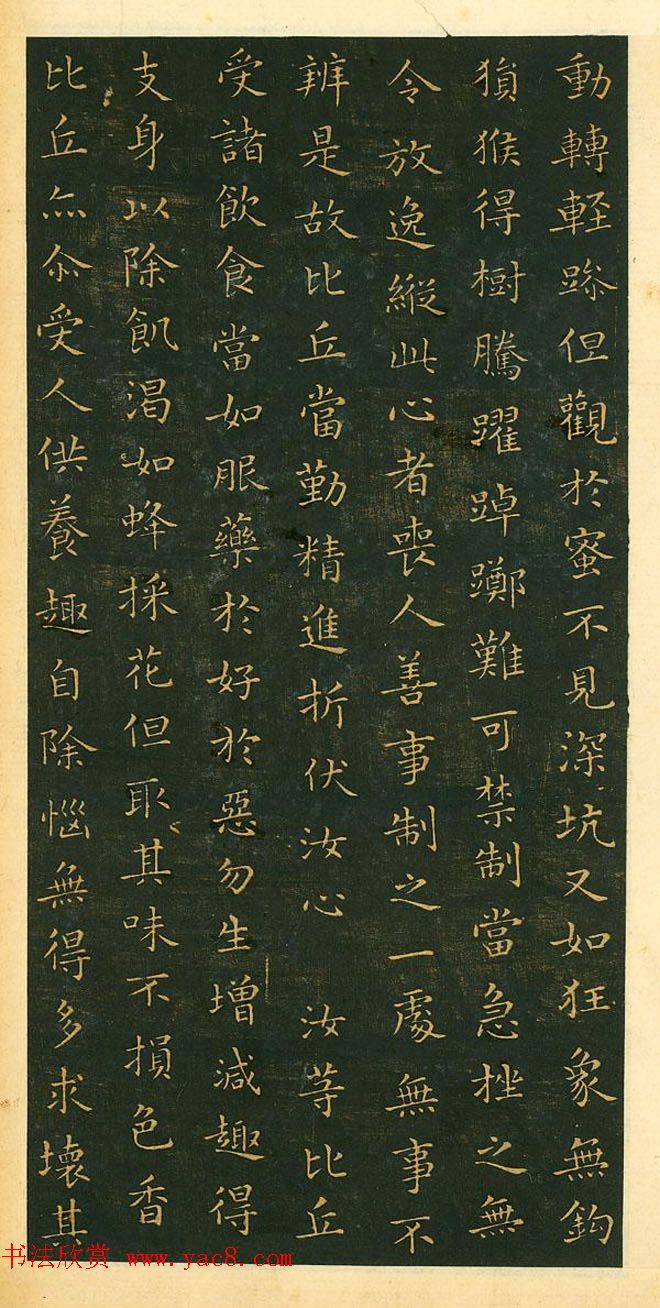 動轉輕躁但觀於蜜不見深坑又如狂象無鈎
猨猴得樹騰躍踔躑難可禁制當急挫之無
令放逸縱此心者喪人善事制之一處無事不
辦是故比丘當勤精進折伏汝心 汝等比丘
受諸飲食當如服藥於好於惡勿生增減趣得
支身以除飢渴如蜂採花但取其味不損色香
比丘亦尒受人供養趣自除惱無得多求壞其
书法欣赏 www.yac8.com